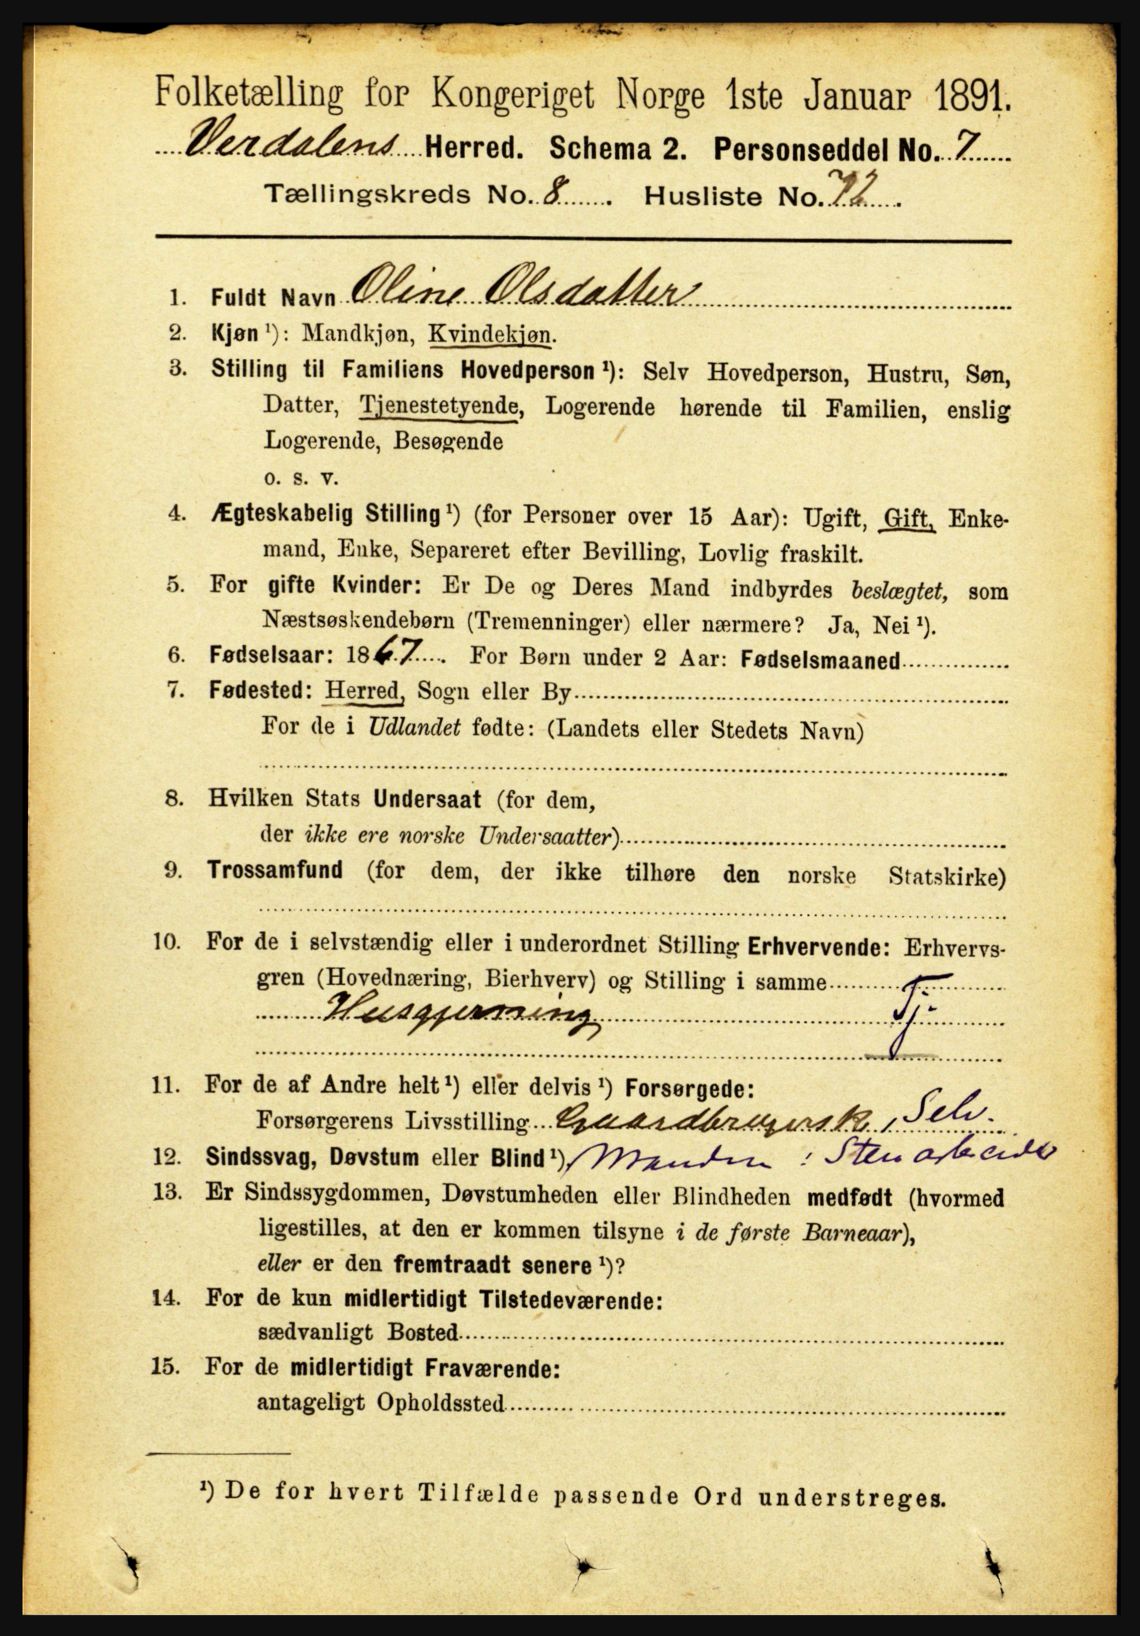 Folketælling for Kongeriget Norge 1ste Januar 1891.
Verdalens Herred. Schema 2. Personseddel No. 7
Tællingskreds No. 8. Husliste No. 72.
1. Fuldt Navn Oline Olsdatter
2. Kjøn ¹): Mandkjøn, Kvindekjøn.
3. Stilling til Familiens Hovedperson ¹): Selv Hovedperson, Hustru, Søn,
Datter, Tjenestetyende, Logerende hørende til Familien, enslig
Logerende, Besøgende
o. s. v.
4. Ægteskabelig Stilling ¹) (for Personer over 15 Aar): Ugift, Gift, Enke-
mand, Enke, Separeret efter Bevilling, Lovlig fraskilt.
5. For gifte Kvinder: Er De og Deres Mand indbyrdes beslægtet, som
Næstsøskendebørn (Tremenninger) eller nærmere? Ja, Nei ¹).
6. Fødselsaar: 1867. For Børn under 2 Aar: Fødselsmaaned
7. Fødested: Herred, Sogn eller By
For de i Udlandet fødte: (Landets eller Stedets Navn)
8. Hvilken Stats Undersaat (for dem,
der ikke ere norske Undersaatter)
9. Trossamfund (for dem, der ikke tilhøre den norske Statskirke)
10. For de i selvstændig eller i underordnet Stilling Erhvervende: Erhvervs-
gren (Hovednæring, Bierhverv) og Stilling i samme
Husgjerning Tj.
11. For de af Andre helt ¹) eller delvis ¹) Forsørgede:
Forsørgerens Livsstilling Gaardbrugersk, Selv.
12. Sindssvag, Døvstum eller Blind ¹) Manden: Stenarbeider
13. Er Sindssygdommen, Døvstumheden eller Blindheden medfødt (hvormed
ligestilles, at den er kommen tilsyne i de første Barneaar),
eller er den fremtraadt senere ¹)?
14. For de kun midlertidigt Tilstedeværende:
sædvanligt Bosted
15. For de midlertidigt Fraværende:
antageligt Opholdssted
¹) De for hvert Tilfælde passende Ord understreges.